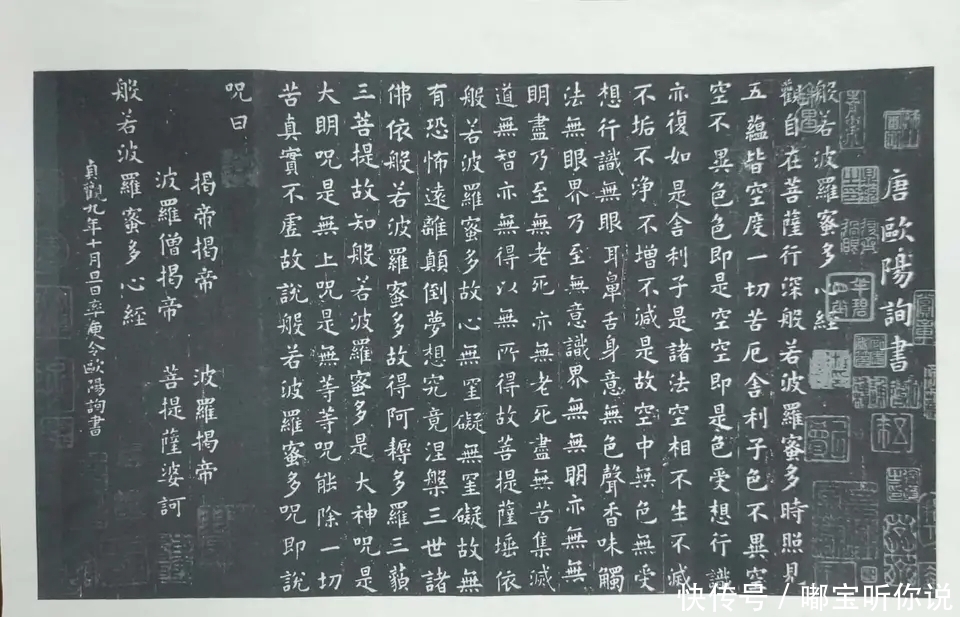 唐歐陽詢書
般若波羅蜜多心經
觀自在菩薩行深般若波羅蜜多時照見
五蘊皆空度一切苦厄舍利子色不異空
空不異色色即是空空即是色受想行識
亦復如是舍利子是諸法空相不生不滅
不垢不淨不增不減是故空中無色無受
想行識無眼耳鼻舌身意無色聲香味觸
法無眼界乃至無意識界無無明亦無無
明盡乃至無老死亦無老死盡無苦集滅
道無智亦無得以無所得故菩提薩埵依
般若波羅蜜多故心無罣礙無罣礙故無
有恐怖遠離顛倒夢想究竟涅槃三世諸
佛依般若波羅蜜多故得阿耨多羅三藐
三菩提故知般若波羅蜜多是大神咒是
大明咒是無上咒是無等等咒能除一切
苦真實不虛故說般若波羅蜜多咒即說
咒曰
揭帝揭帝 波羅揭帝
波羅僧揭帝 菩提薩婆訶
般若波羅蜜多心經
貞觀九年十月旦日率更令歐陽詢書
快传号/嘟宝听你说